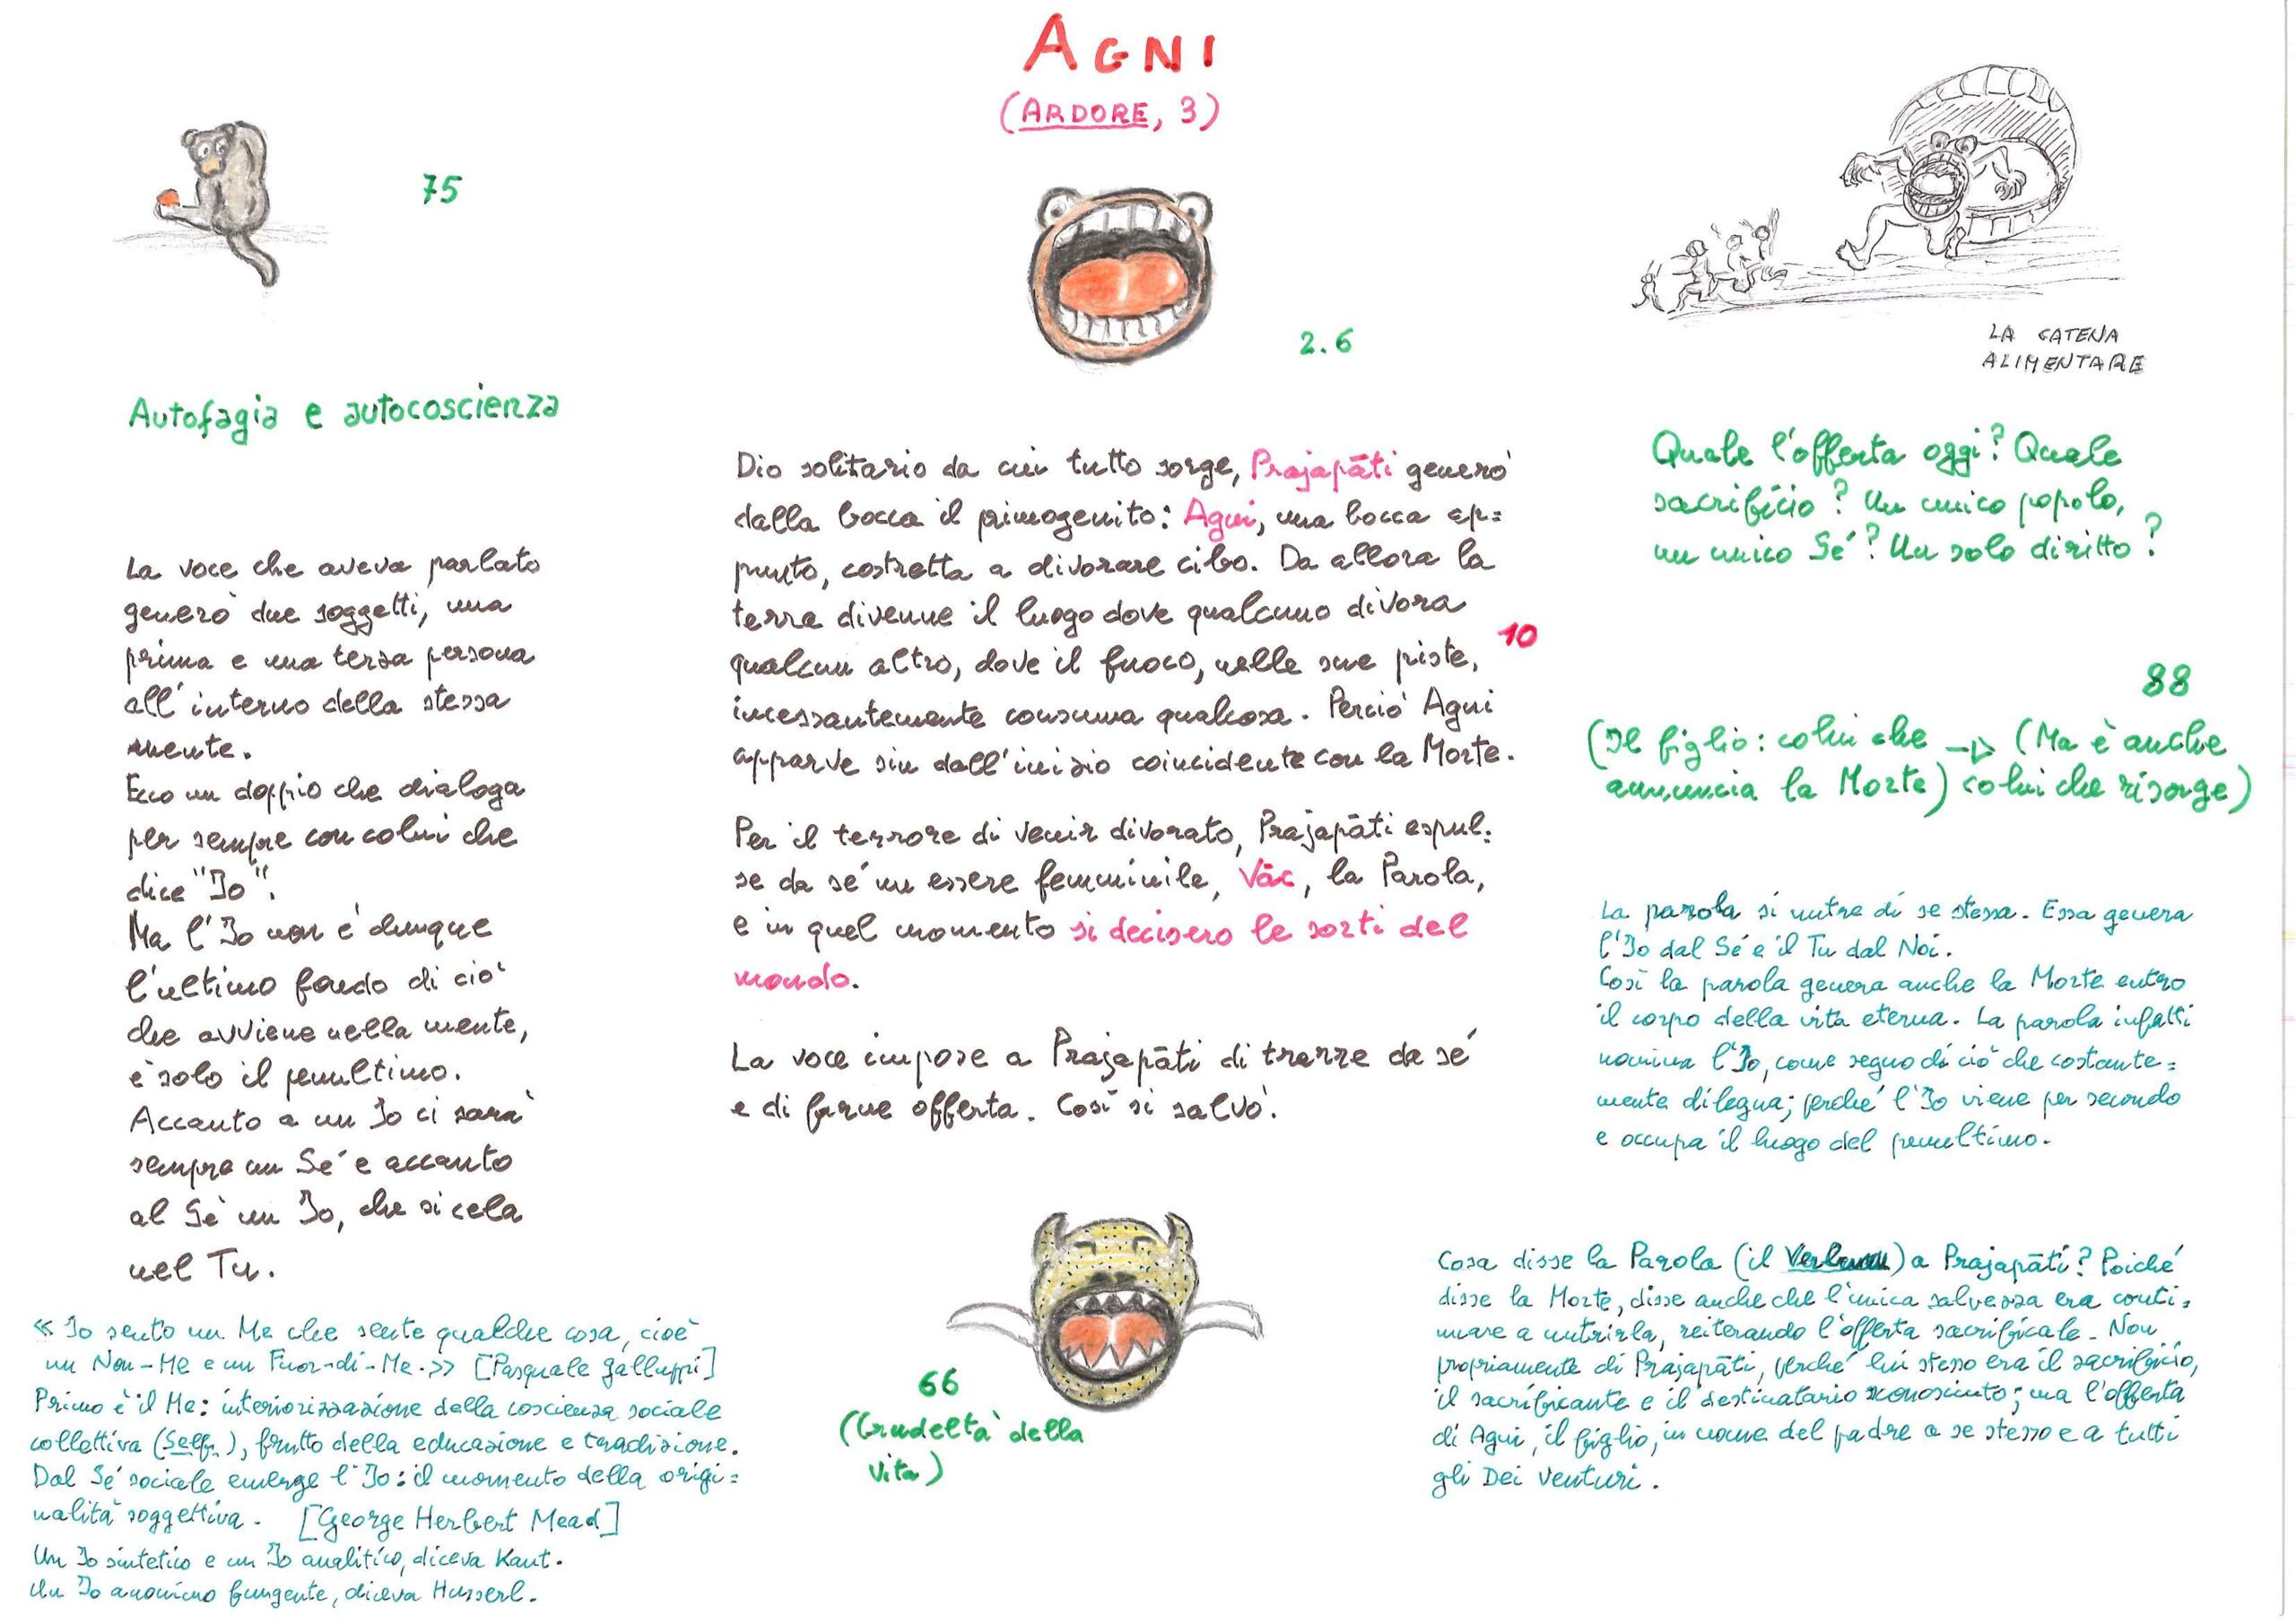 AGNI
(ARDORE, 3)
75
Autofagia e autocoscienza
La voce che aveva parlato
generò due soggetti, una
prima e una terza persona
all'interno della stessa
mente.
Ecco un doppio che dialoga
per sempre con colui che
dice "Io".
Ma l'Io non è dunque
l'ultimo fondo di ciò
che avviene nella mente,
è solo il penultimo.
Accanto a un Io ci sarà
sempre un Sé e accanto
al Sé un Io, che si cela
nel Tu.
« Io sento un Me che sente qualche cosa, cioè
un Non-Me e un Fuor-di-Me.» [Pasquale Galluppi]
Primo è il Me: interiorizzazione della coscienza sociale
collettiva (Self), frutto della educazione e tradizione.
Dal Sé sociale emerge l'Io: il momento della origi=
nalità soggettiva. [George Herbert Mead]
Un Io sintetico e un Io analitico, diceva Kant.
Un Io anonimo fungente, diceva Husserl.
2.6
Dio solitario da cui tutto sorge, Prajapāti generò
dalla bocca il primogenito: Agni, una bocca ap=
punto, costretta a divorare cibo. Da allora la
terra divenne il luogo dove qualcuno divora
qualcun altro, dove il fuoco, nelle sue piste,
10
incessantemente consuma qualcosa. Perciò Agni
apparve sin dall'inizio coincidente con la Morte.
Per il terrore di venir divorato, Prajapāti espul=
se da sé un essere femminile, Vāc, la Parola,
e in quel momento si decisero le sorti del
mondo.
La voce impose a Prajapāti di trarre da sé
e di farne offerta. Così si salvò.
66
(Crudeltà della
vita)
LA CATENA
ALIMENTARE
Quale l'offerta oggi? Quale
sacrificio? Un unico popolo,
un unico Sé? Un solo diritto?
88
(Il figlio: colui che → (Ma è anche
annuncia la Morte) colui che risorge)
La parola si nutre di se stessa. Essa genera
l'Io dal Sé e il Tu dal Noi.
Così la parola genera anche la Morte entro
il corpo della vita eterna. La parola infatti
nomina l'Io, come segno di ciò che costante=
mente dilegua; perché l'Io viene per secondo
e occupa il luogo del penultimo.
Cosa disse la Parola (il Verbum) a Prajapāti? Poiché
disse la Morte, disse anche che l'unica salvezza era conti=
nuare a nutrirla, reiterando l'offerta sacrificale. Non
propriamente di Prajapāti, perché lui stesso era il sacrificio,
il sacrificante e il destinatario sconosciuto; ma l'offerta
di Agni, il figlio, in nome del padre a se stesso e a tutti
gli Dei venturi.